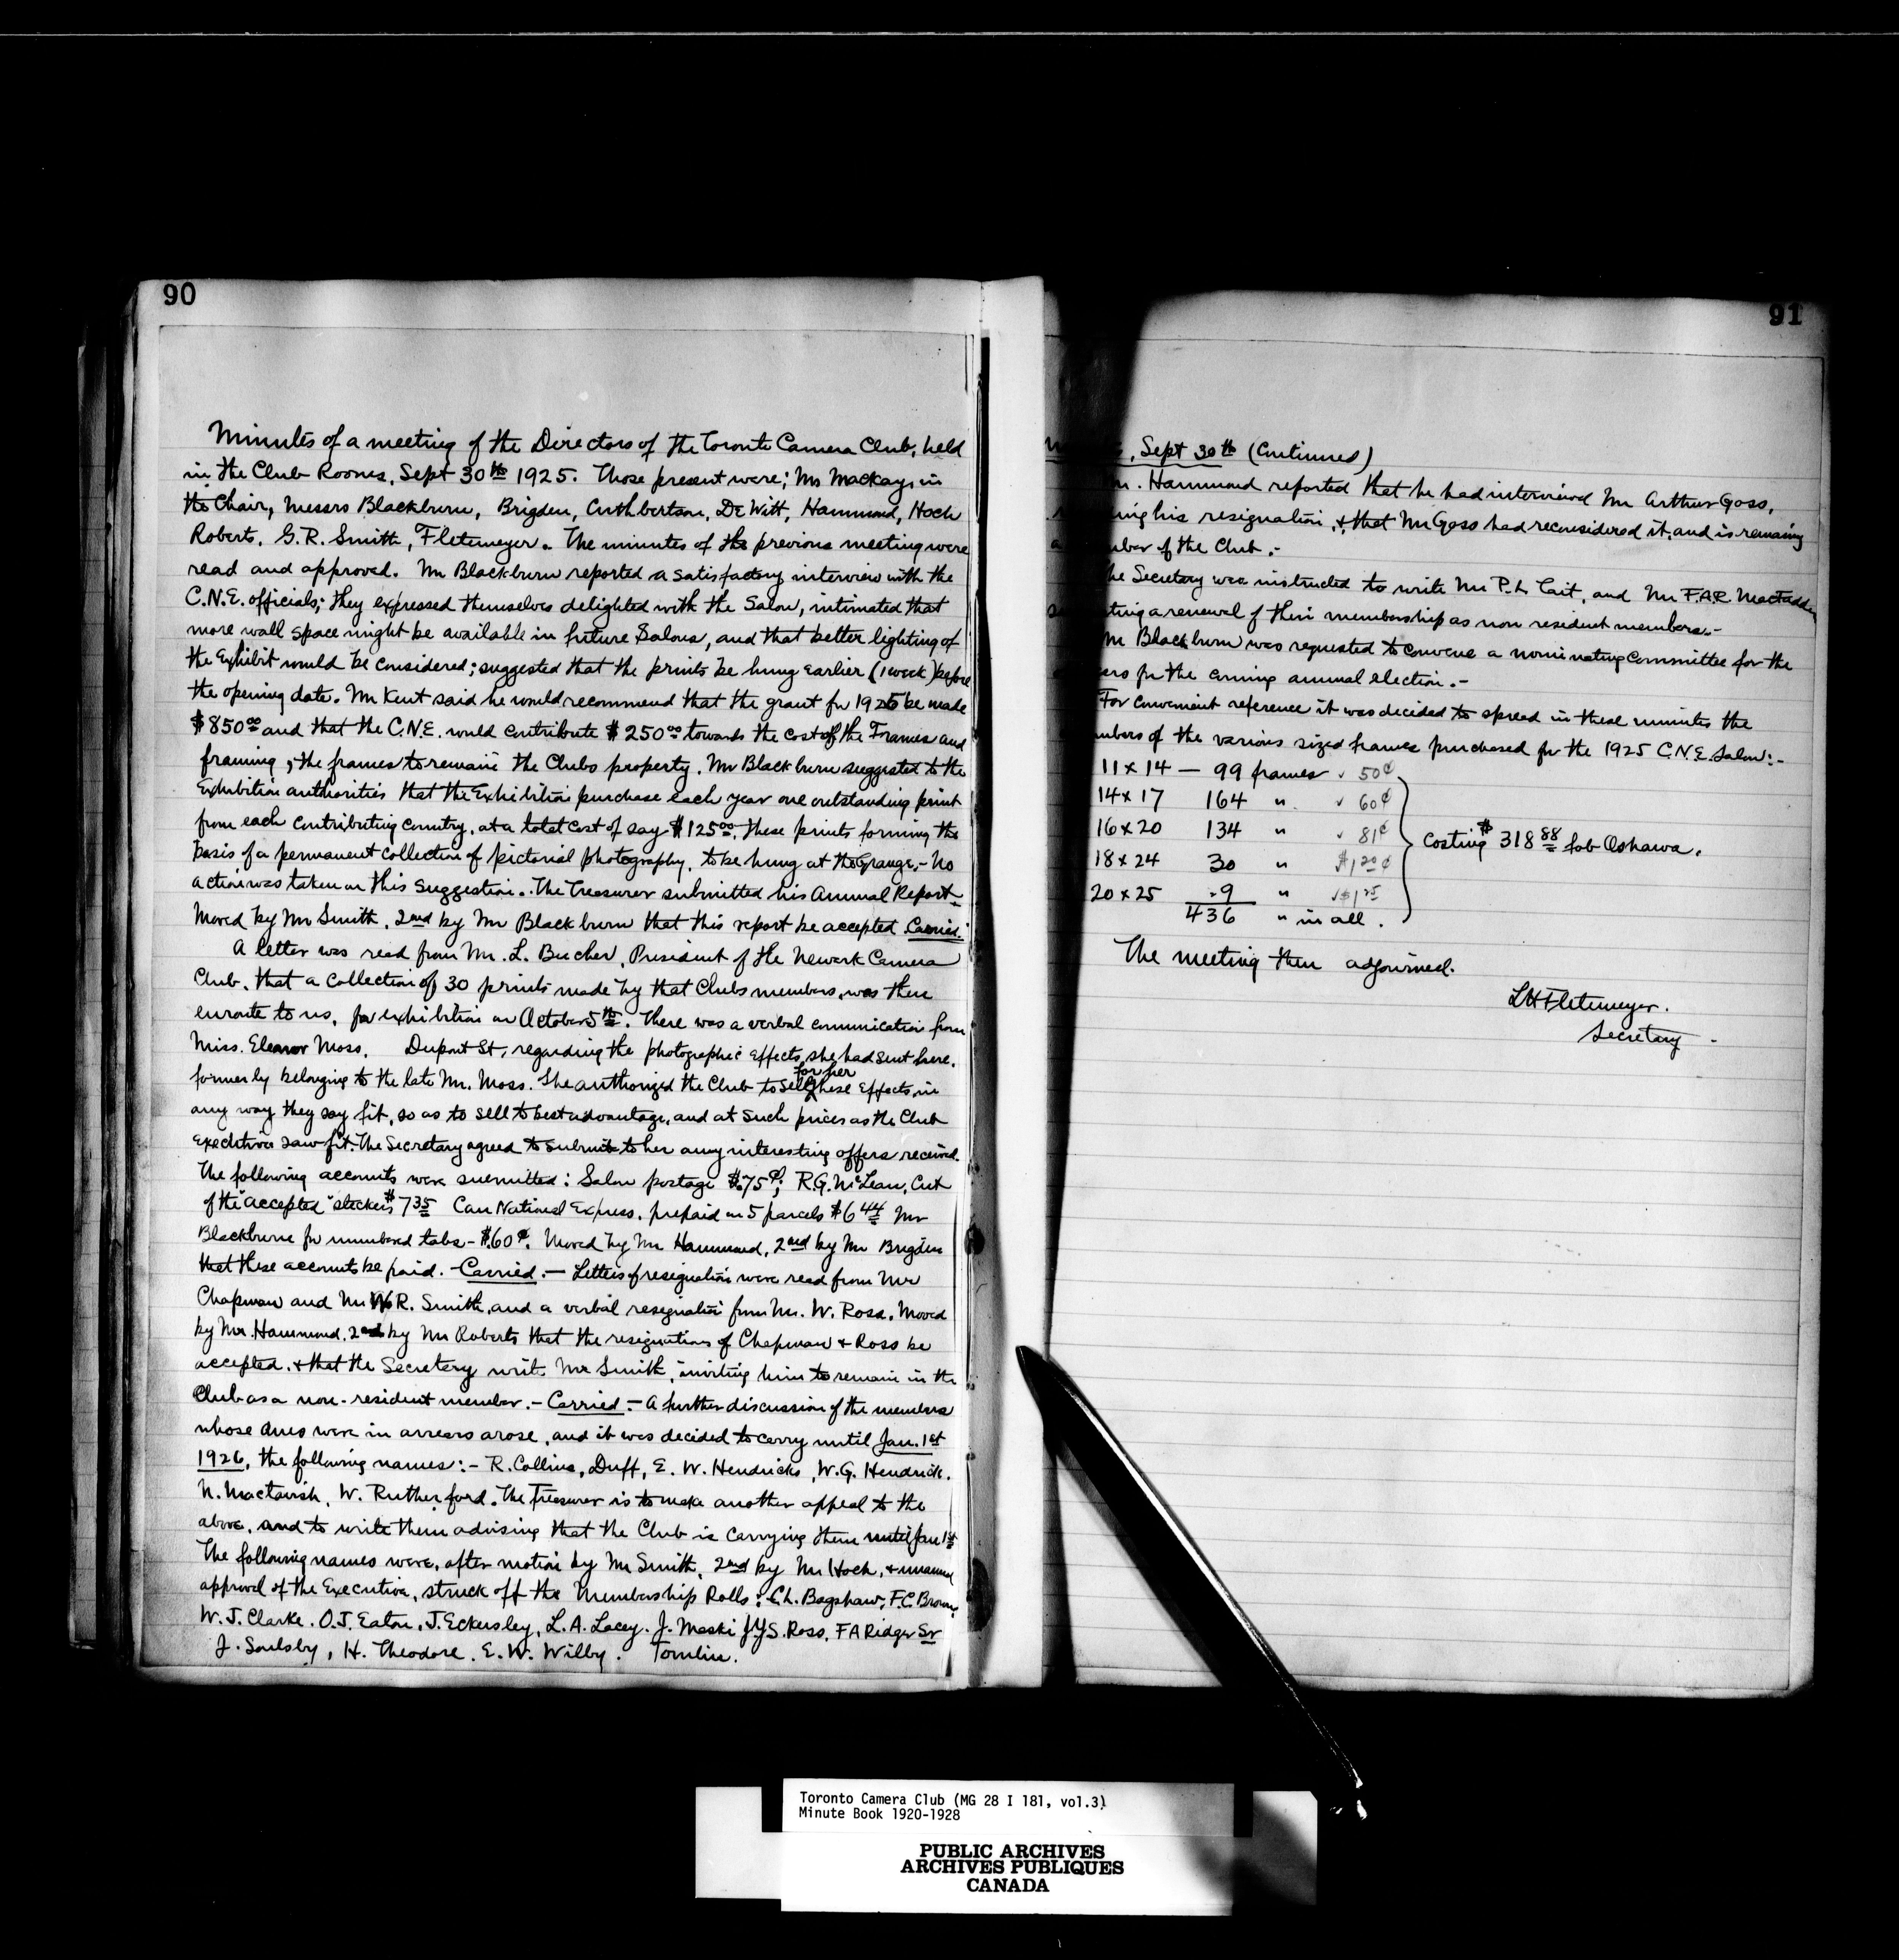 90
Minutes of a meeting of the Directors of the Toronto Camera Club, held
in the Club Rooms, Sept 30th 1925. Those present were; Mr Mackay, in
the Chair, Messrs Blackburn, Brigden, Cuthbertson, De Witt, Hammond, Hoch
Roberts. G.R. Smith, Fletemeyer. The minutes of the previous meeting were
read and approved. Mr Blackburn reported a satisfactory interview with the
C.N.E. officials; they expressed themselves delighted with the Salon, intimated that
more wall space might be available in future Salons, and that better lighting of
the Exhibit would be considered; suggested that the prints be hung earlier (1 week) before
the opening date. Mr Kent said he would recommend that the grant for 1926 be made
$850.00 and that the C.N.E. would contribute $250.00 towards the cost of the Frames and
framing, the frames to remain the Clubs property. Mr Blackburn suggested to the
Exhibition authorities that the Exhibition purchase each year one outstanding print
from each contributing country, at a total cost of say $125.00, these prints forming the
basis of a permanent collection of pictorial photography, to be hung at the Grange. - No
action was taken on this suggestion. The Treasurer submitted his Annual Report -
Moved by Mr Smith, 2nd by Mr Blackburn that this report be accepted. Carried.
A letter was read from Mr. L. Bucher, President of the Newark Camera
Club, that a collection of 30 prints made by that Clubs members, was then
enroute to us, for exhibition on October 5th. There was a verbal communication from
Miss. Eleanor Moss, Dupont St, regarding the photographic effects she had sent here,
formerly belonging to the late Mr. Moss. She authorized the Club to sell for her these effects, in
any way they say fit, so as to sell to best advantage, and at such prices as the Club
executive saw fit. The Secretary agreed to submit to her any interesting offers received.
The following accounts were submitted: Salon postage $.75¢; R.G. McLean, Cut
of the "accepted" stickers $7.35 Can National Express, prepaid on 5 parcels $6.44 Mr
Blackburn for numbered tabs - $.60¢. Moved by Mr Hammond, 2nd by Mr Brigden
that these accounts be paid. - Carried. - Letters of resignation were read from Mr
Chapman and Mr W.R. Smith, and a verbal resignation from Mr. W. Ross. Moved
by Mr. Hammond, 2nd by Mr Roberts that the resignations of Chapman & Ross be
accepted, & that the Secretary write Mr Smith, inviting him to remain in the
Club as a non-resident member. - Carried - A further discussion of the members
whose dues were in arrears arose, and it was decided to carry until Jan. 1st
1926, the following names: - R. Collins, Duff, E. W. Hendricks, W.G. Hendrick,
N. Mactavish, W. Rutherford. The Treasurer is to make another appeal to the
above, and to write them advising that the Club is carrying them until Jan 1st
The following names were, after motion by Mr Smith, 2nd by Mr Hoch, &
approval of the Executive, struck off the Membership Rolls: C.L. Bagshaw, F.C. Brown,
W.J. Clarke. O.J. Eaton, J. Eckersley, L.A. Lacey. J. Maski J.Y.S. Ross, F A Ridger Sr
J. Soulsby, H. Theodore. E.W. Wilby. Tomlin.
91
, Sept 30th (Continued)
. Hammond reported that he had interviewed Mr Arthur Goss,
his resignation, & that Mr Goss had reconsidered it, and is remaining
of the Club. -
Secretary was instructed to write Mr P.L Tait, and Mr F.A.R. MacFadden
a renewal of their membership as non resident members. -
Mr Blackburn was requested to convene a nominating Committee for the
for the coming annual election. -
For convenient reference it was decided to spread in these minutes the
of the various sized frames purchased for the 1925 C.N.E. Salon: -
11 x 14 — 99 frames √ 50¢
14 x 17 164 " √ 60¢
16 x 20 134 " √ 81¢
18 x 24 30 " $1.20¢
20 x 25 9 " √ $1.25
436 " in all.
Costing $318.88 fob Oshawa.
The meeting then adjourned.
LH Fletemeyer.
Secretary -
Toronto Camera Club (MG 28 I 181, vol.3)
Minute Book 1920-1928
PUBLIC ARCHIVES
ARCHIVES PUBLIQUES
CANADA